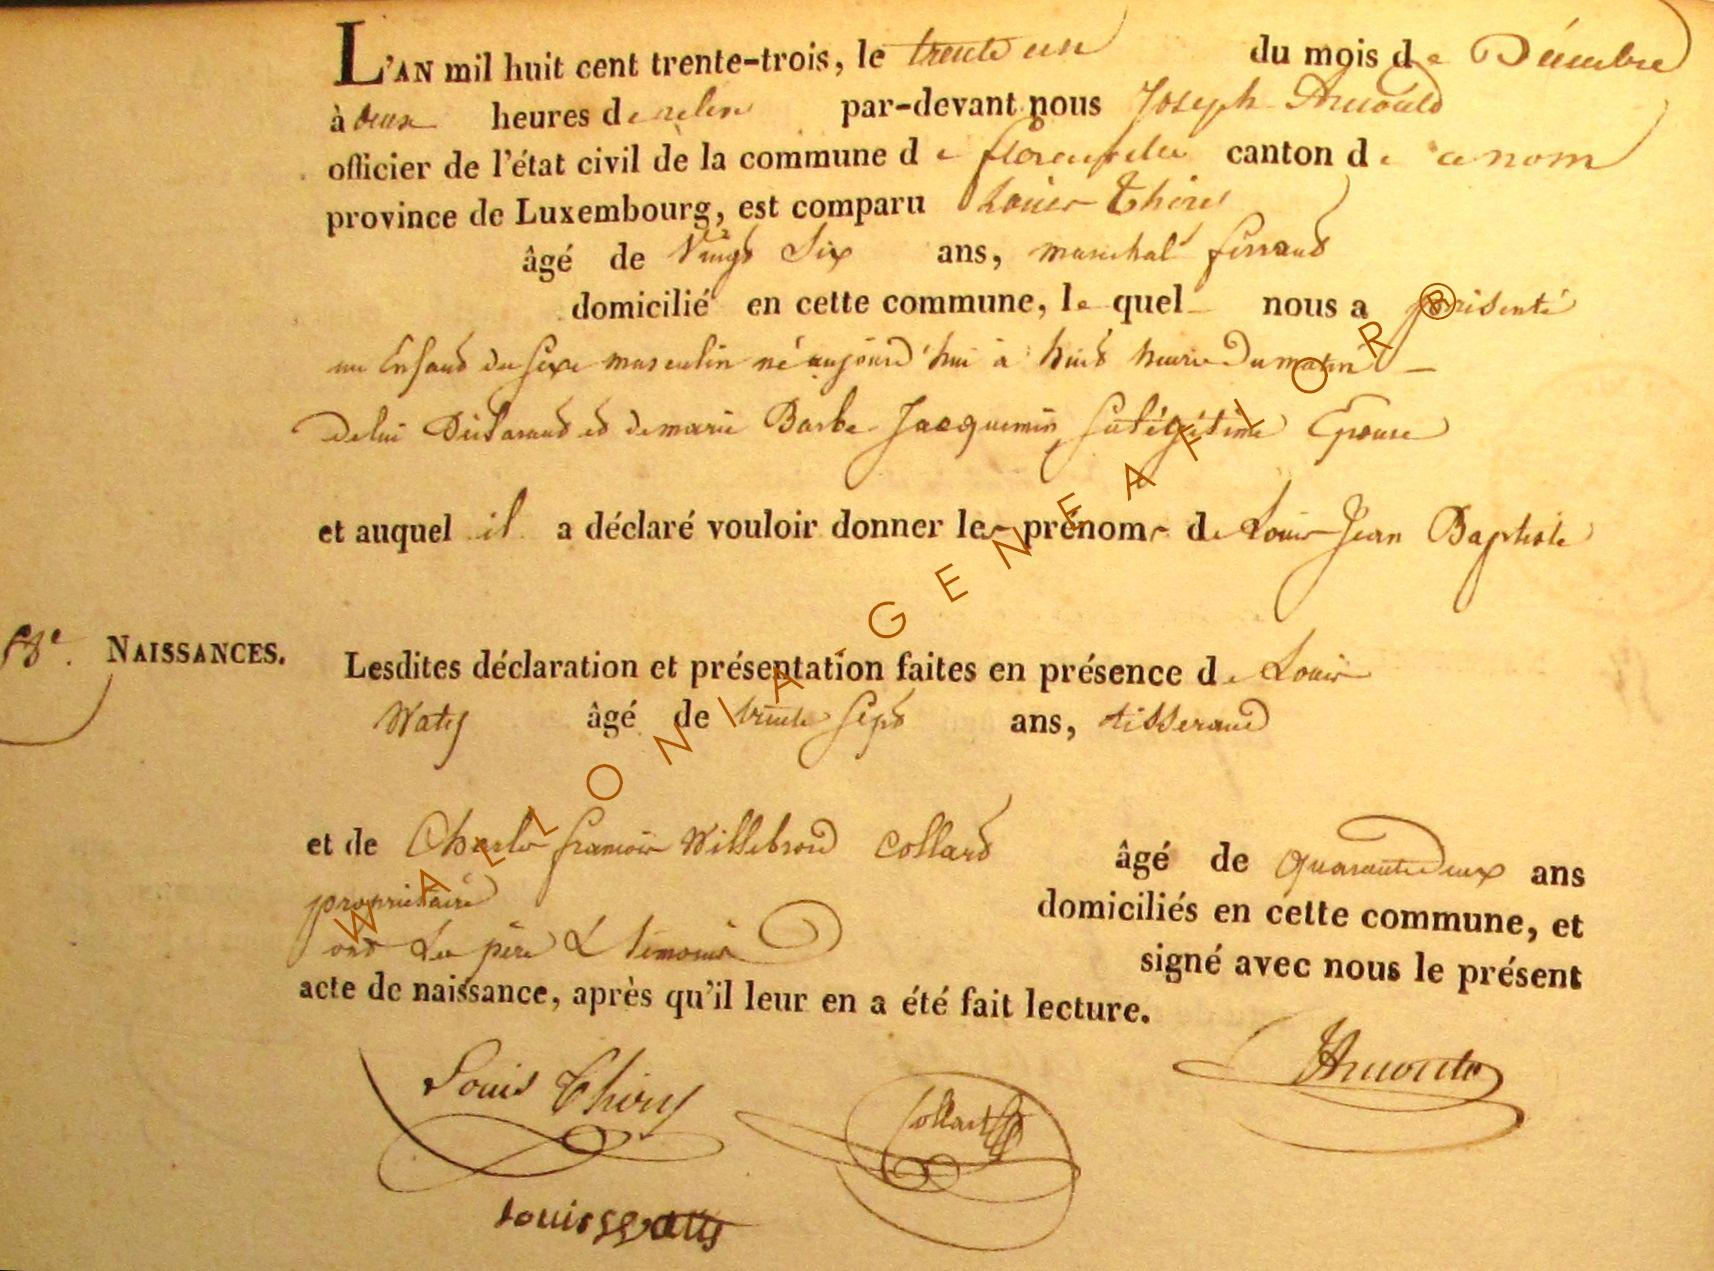 L'AN mil huit cent trente-trois, le trente un du mois de Décembre
à deux heures de relevé par-devant nous Joseph Arnould
officier de l'état civil de la commune de florenville canton de ce nom
province de Luxembourg, est comparu Louis Thiry
âgé de Vingt Six ans, marechal ferrand
domicilié en cette commune, lequel nous a présenté
un Enfand du sexe masculin né aujourd'hui à huit heures du matin
de lui Déclarand et de marie Barbe Jacquemin, sa légitime Epouse
et auquel il a déclaré vouloir donner les prénoms de Louis Jean Baptiste
NAISSANCES.
Lesdites déclaration et présentation faites en présence de Louis
Watÿ âgé de trente sept ans, tisserand
et de Charles francois Willebrord Collard âgé de quarante deux ans
propriétaire domiciliés en cette commune, et
ont Les père & témoins signé avec nous le présent
acte de naissance, après qu'il leur en a été fait lecture.
Louis Thiry
Collard
JArnould
Louis Watÿ
WALLONIA GENEAFLOR®